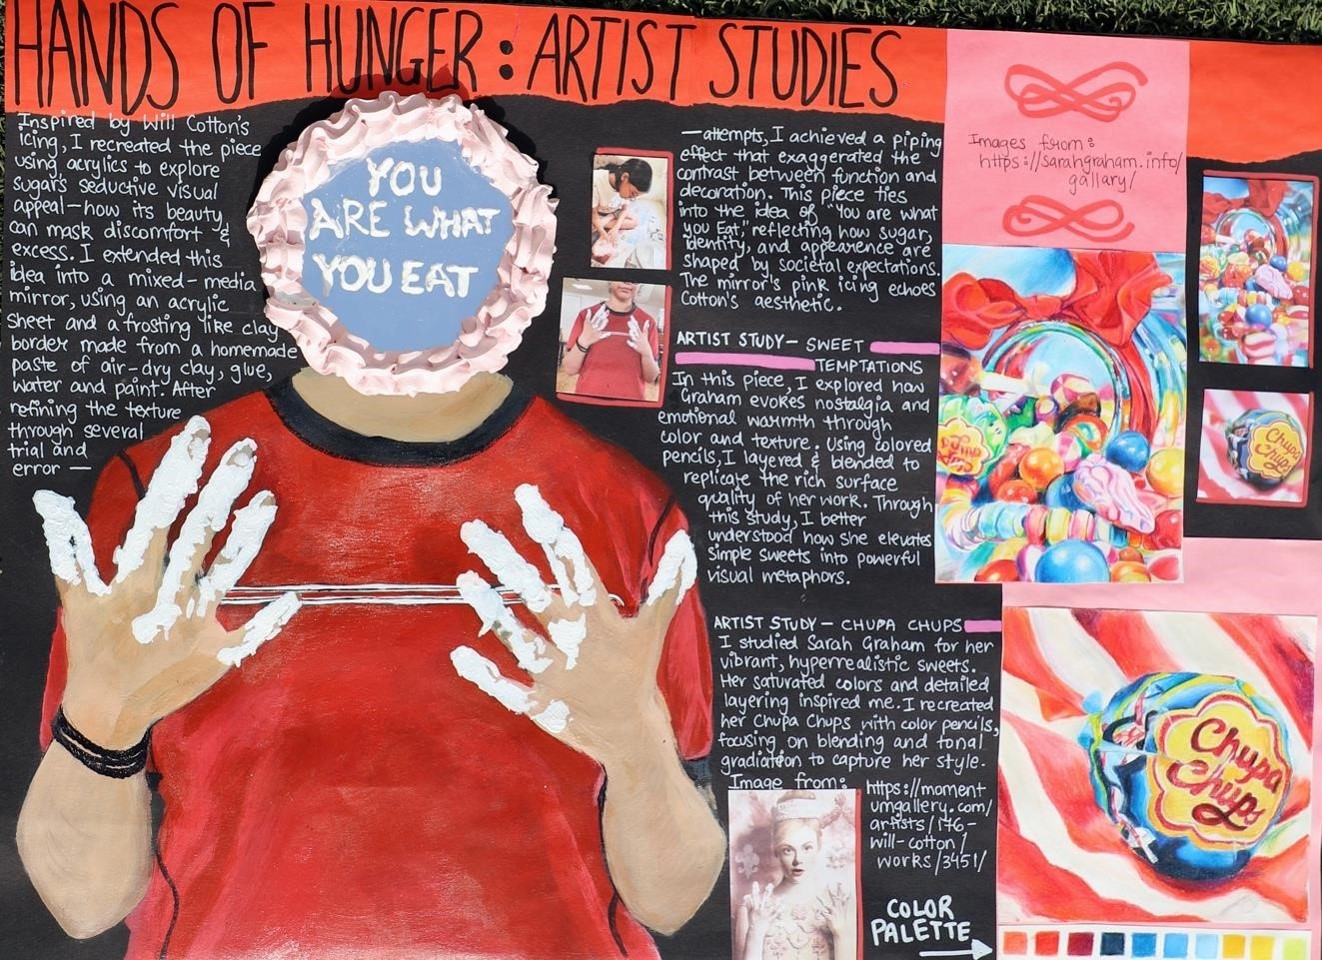 HANDS OF HUNGER: ARTIST STUDIES
Inspired by Will Cotton's
icing, I recreated the piece
using acrylics to explore
sugar's seductive visual
appeal—how its beauty
can mask discomfort &
excess. I extended this
idea into a mixed-media
mirror, using an acrylic
sheet and a frosting like clay
border made from a homemade
paste of air-dry clay, glue,
water and paint. After
refining the texture
through several
trial and
error —
YOU
ARE WHAT
YOU EAT
—attempts, I achieved a piping
effect that exaggerated the
contrast between function and
decoration. This piece ties
into the idea of "You are what
you Eat," reflecting how sugar,
identity, and appearence are
shaped by societal expectations.
The mirror's pink icing echoes
Cotton's aesthetic.
ARTIST STUDY— SWEET
TEMPTATIONS
In this piece, I explored how
Graham evokes nostalgia and
emotional warmth through
color and texture. Using colored
pencils, I layered & blended to
replicate the rich surface
quality of her work. Through
this study, I better
understood how she elevates
simple sweets into powerful
visual metaphors.
ARTIST STUDY — CHUPA CHUPS
I studied Sarah Graham for her
vibrant, hyperrealistic sweets.
Her saturated colors and detailed
layering inspired me. I recreated
her Chupa Chups with color pencils,
focusing on blending and tonal
gradiation to capture her style.
Image from:
https://moment
umgallery.com/
artists/176-
will-cotton/
works/3451/
COLOR
PALETTE
Images from:
https://sarahgraham.info/
gallary/
Chupa
Chups
Chupa
Chups